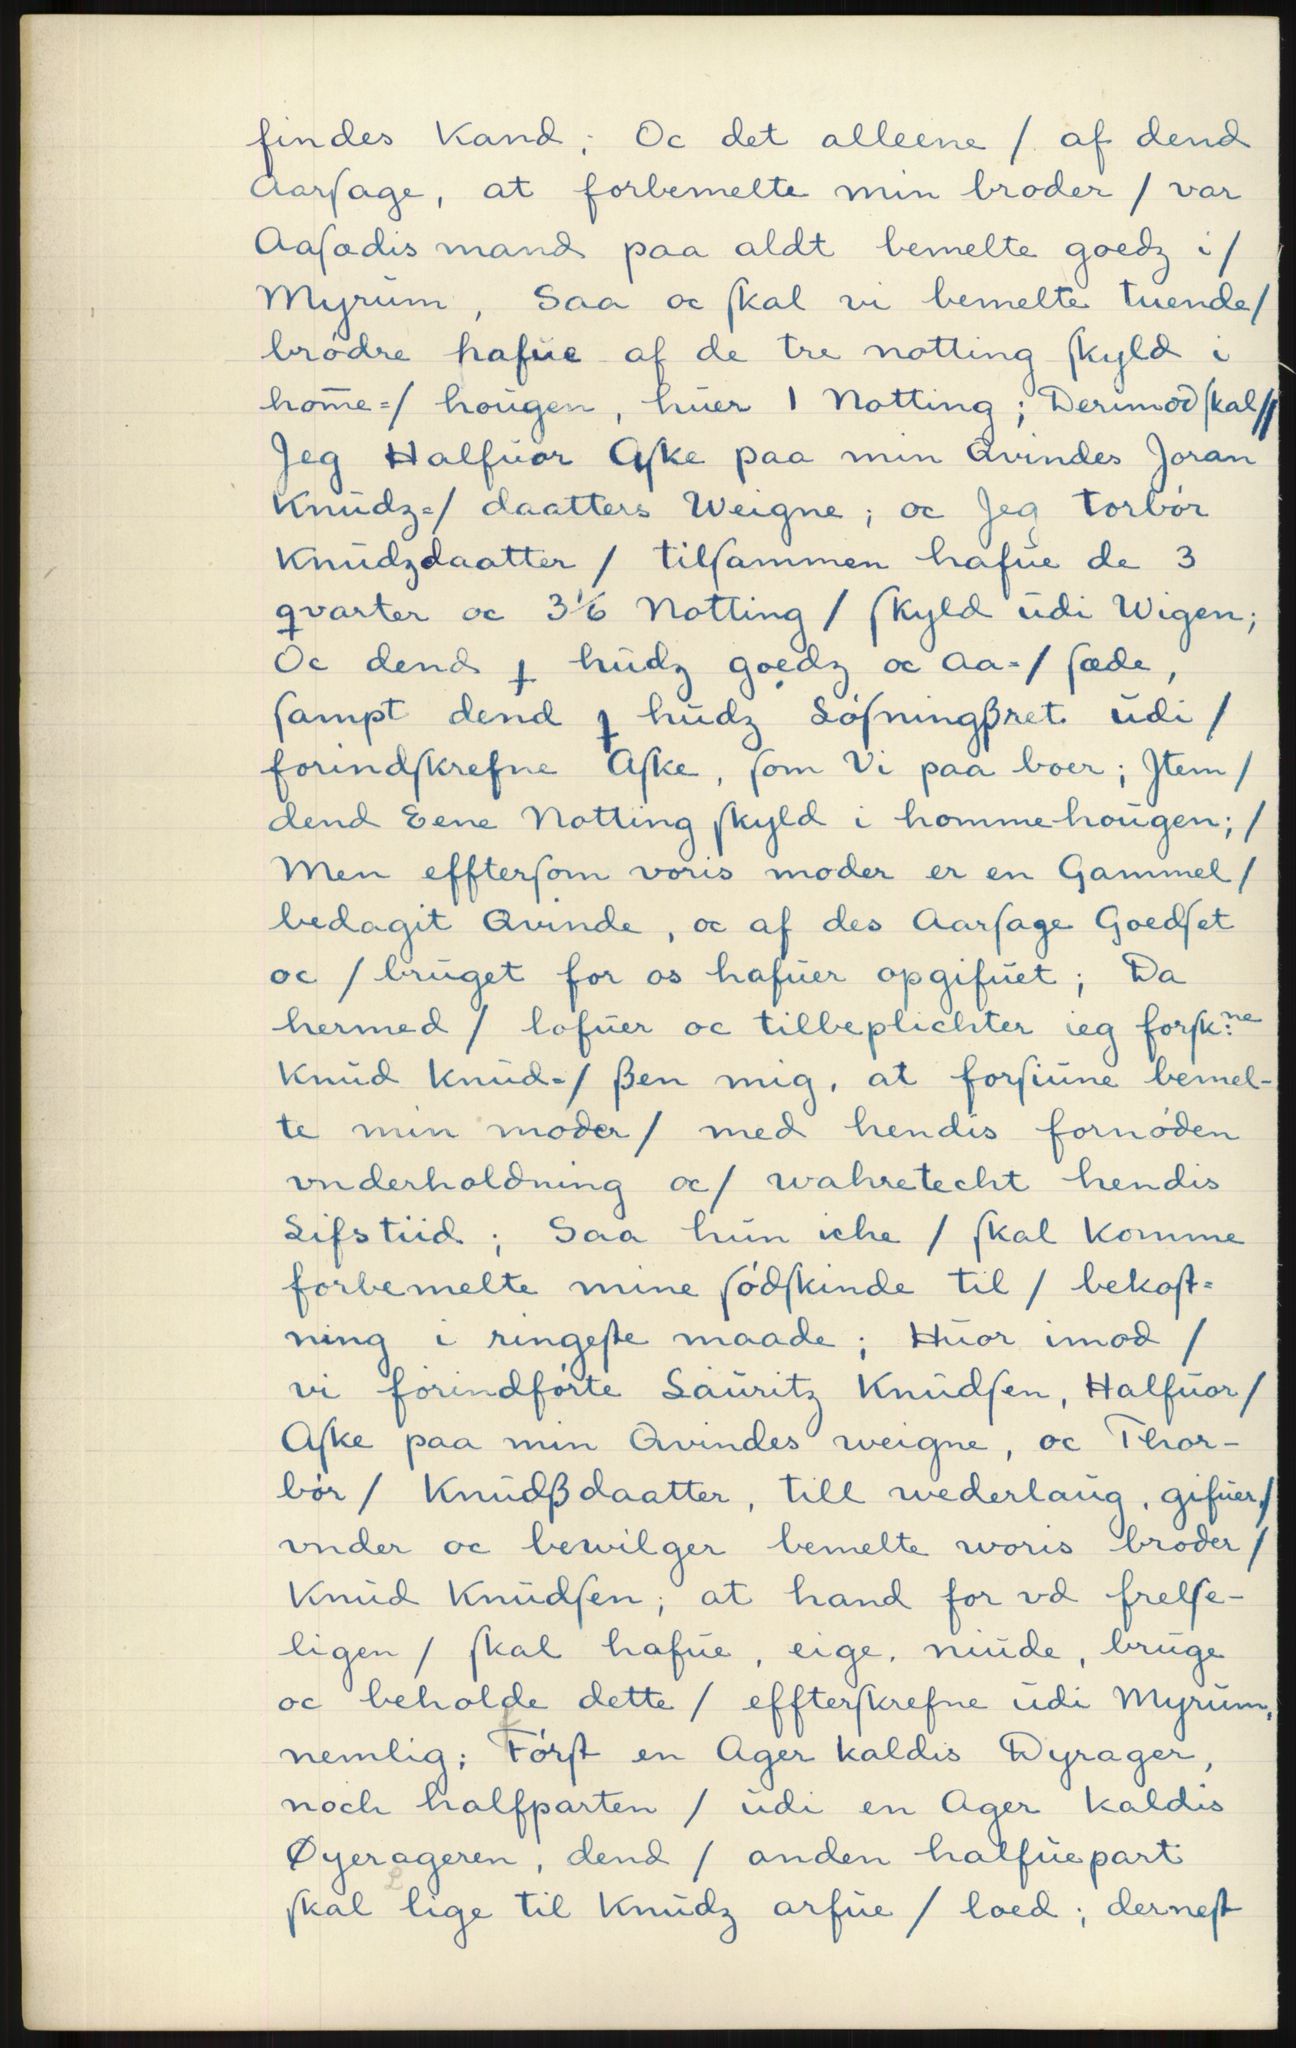 findes Kand; Oc det alleene / af dend
Aarſage, at forbemelte min broder / var
Aaſædis mand paa aldt bemelte goedz i /
Myrum, Saa oc ſkal vi bemelte tuende /
brødre hafue af de tre notting ſkyld i
hom̄e=/ hougen, huer 1 Notting; Derimod ſkal //
Jeg Halfuor Aſke paa min Qvindes Joran
Knudz=/ daatters Weigne; oc Jeg torbør
Knudzdaatter / tilſammen hafue de 3
qvarter oc 3 1/6 Notting / ſkyld udi Wigen;
Oc dend ɟ hudz goedz oc Aa=/ ſæde,
ſampt dend ɟ hudz Løſningßret udi /
forindſkrefne Aſke, ſom Vi paa boer; Jtem /
dend Eene Notting ſkyld i hommehougen; /
Men efftersom voris moder er en Gammel /
bedagit Qvinde, oc af des Aarſage Goedſet
oc / bruget for os hafuer opgifuet; Da
hermed / lofuer oc tilbeplichter ieg forſk:ne
Knud Knud=/ ßen mig, at forſiune bemel-
te min moder / med hendis fornøden
vnderholdning oc / wahretecht hendis
Lifstiid; Saa hun iche / ſkal komme
forbemelte mine ſødſkinde til / bekoſt=
ning i ringeſte maade; Huor imod /
vi forindførte Lauritz Knudſen, Halfuor /
Aſke paa min Qvindes weigne, oc Thor-
bør / Knudßdaatter, till wederlaug, gifuer, /
vnder oc bewilger bemelte woris broder /
Knud Knudſen; at hand for vd frelſe-
ligen / ſkal hafue, eige, niude, bruge
oc beholde dette / effterſkrefne udi Myrum,
nemlig; Førſt en Ager kaldis Dyrager,
noch halfparten / udi en Ager kaldis
Øyerageren, dend / anden halfuepart
ſkal lige til Knudz arfue / loed; derneſt